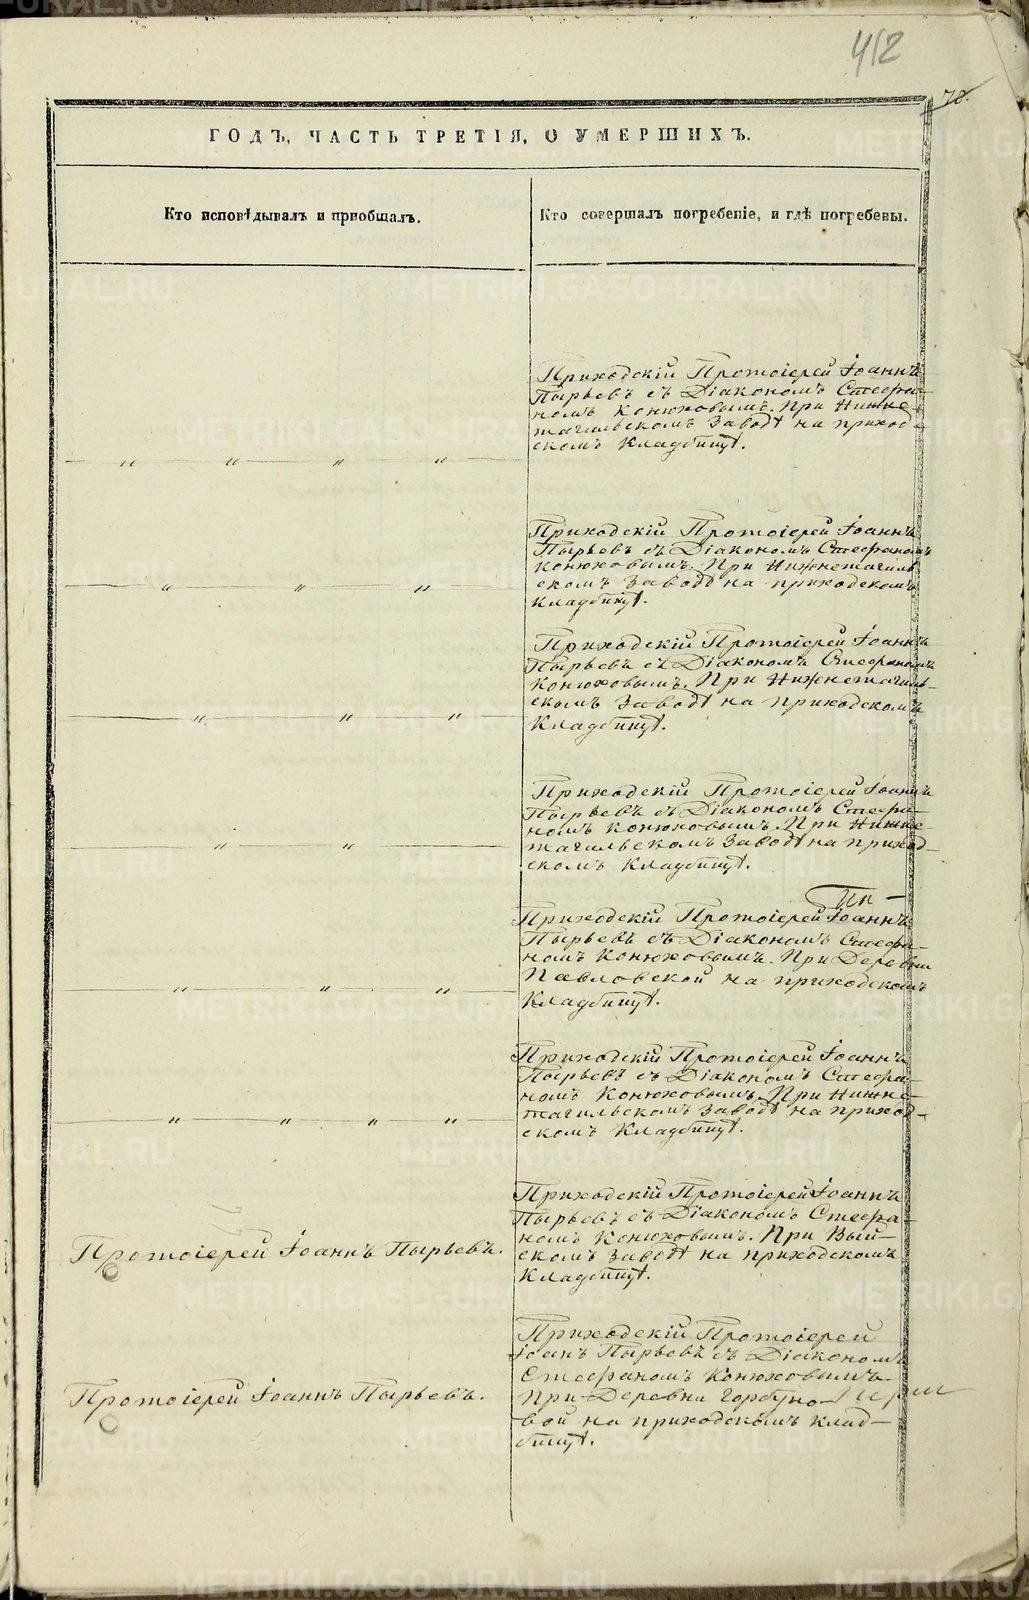 412
78.
ГОДЪ, ЧАСТЬ ТРЕТІЯ, О УМЕРШИХЪ.
Кто исповѣдывалъ и пріобщалъ.
Кто совершалъ погребеніе, и гдѣ погребены.
Приходскій Протоіерей Іоаннъ
Пырьевъ съ Діакономъ Стефа-
номъ Конюховымъ. При Нижне-
тагильскомъ Заводѣ на приход-
скомъ Кладбищѣ.
" " " "
Приходскій Протоіерей Іоаннъ
Пырьевъ съ Діакономъ Стефаномъ
Конюховымъ. При Нижнетагиль
скомъ Заводѣ на приходскомъ
Кладбищѣ.
" " "
Приходскій Протоіерей Іоаннъ
Пырьевъ съ Діакономъ Стефаномъ
Конюховымъ. При Нижнетагиль-
скомъ Заводѣ на приходскомъ
Кладбищѣ.
" " "
Приходскій Протоіерей Іоаннъ
Пырьевъ съ Діакономъ Стефа-
номъ Конюховымъ. При Нижне-
тагильскомъ Заводѣ на приход-
скомъ Кладбищѣ.
" "
Приходскій Протоіерей Іоаннъ
Пырьевъ съ Діакономъ Стефа-
номъ Конюховымъ. При Деревни
Павловской на приходскомъ
Кладбищѣ.
" " "
Приходскій Протоіерей Іоаннъ
Пырьевъ съ Діакономъ Стефа-
номъ Конюховымъ. При Нижне-
тагильскомъ Заводѣ на приход-
скомъ Кладбищѣ.
" " " "
Приходскій Протоіерей Іоаннъ
Пырьевъ съ Діакономъ Стефа-
номъ Конюховымъ. При Вый-
скомъ Заводѣ на приходскомъ
Кладбищѣ.
Протоіерей Іоаннъ Пырьевъ.
Приходскій Протоіерей
Іоанъ Пырьевъ съ Діакономъ
Стефаномъ Конюховымъ.
При Деревни Горбуно-
вой на приходскомъ клад-
бищѣ.
Протоіерей Іоаннъ Пырьевъ.
METRIKI.GASO-URAL.RU